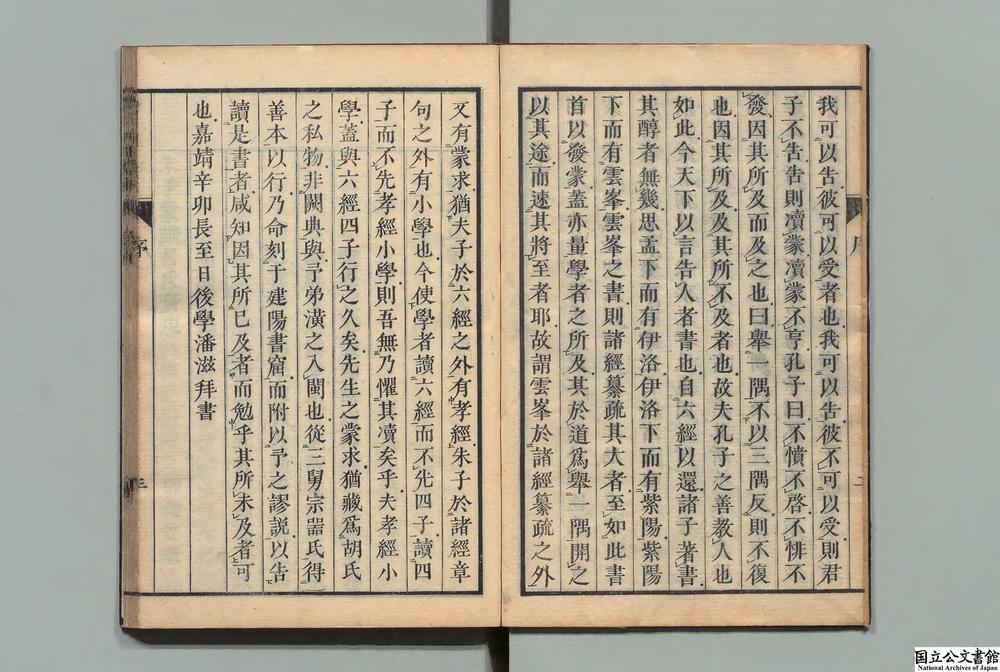 我可以告彼可以受者也我可以告彼不可以受則君
子不告告則凟蒙凟蒙不亨孔子曰不憤不啓不悱不
發因其所及而及之也曰舉一隅不以三隅反則不復
也因其所及及其所不及者也故夫孔子之善教人也
如此今天下以言告人者書也自六經以還諸子著書
其醇者無幾思孟下而有伊洛伊洛下而有紫陽紫陽
下而有雲峯雲峯之書則諸經纂疏其大者至如此書
首以發蒙蓋亦量學者之所及其於道爲舉一隅開之
以其途而速其將至者耶故謂雲峯於諸經纂疏之外
又有蒙求猶夫子於六經之外有孝經朱子於諸經章
句之外有小學也今使學者讀六經而不先四子讀四
子而不先孝經小學則吾無乃懼其凟矣乎夫孝經小
學蓋與六經四子行之久矣先生之蒙求猶藏爲胡氏
之私物非闕典與予弟潢之入閩也從三舅宗噐氏得
善本以行乃命刻于建陽書窟而附以予之謬説以告
讀是書者咸知因其所已及者而勉乎其所未及者可
也嘉靖辛卯長至日後學潘滋拜書
序
三
国立公文書館
National Archives of Japan